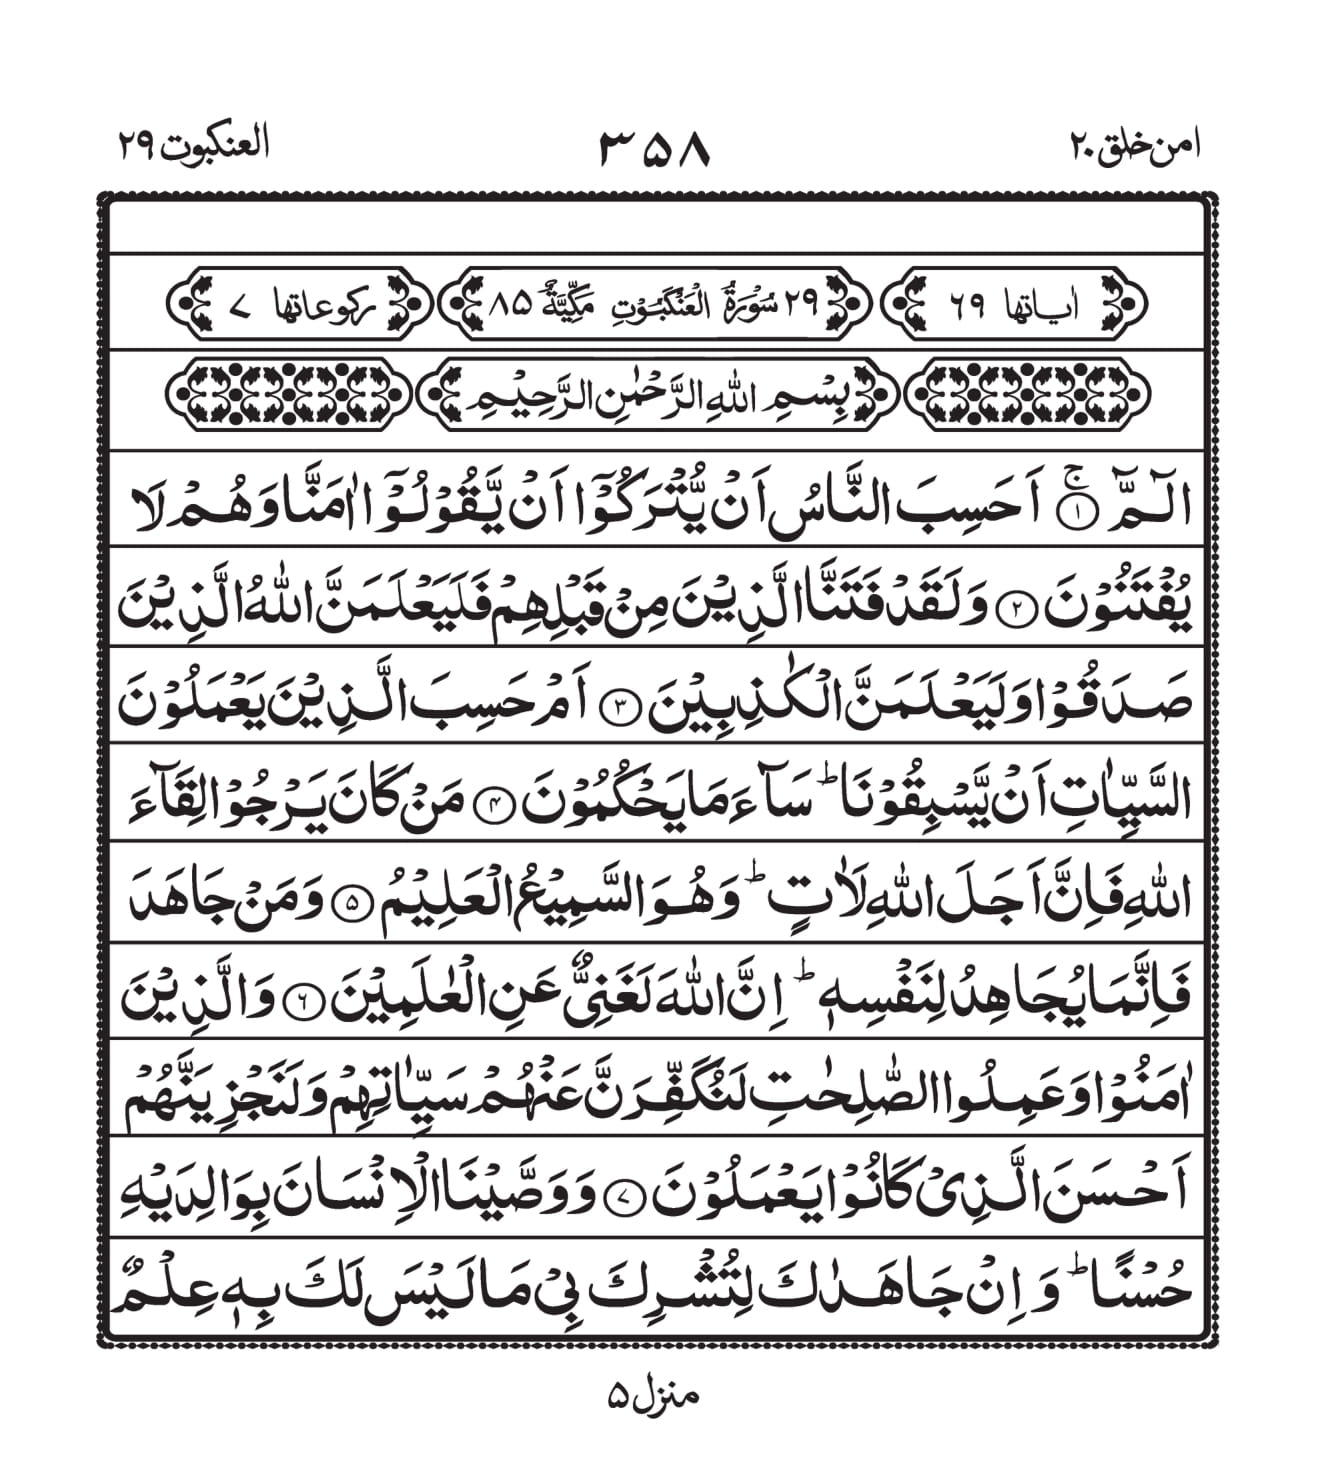 امن خلق ۲۰ ۳۵۸ العنكبوت ۲۹
اٰیاتها ۶۹ ۲۹ سُوْرَةُ الْعَنْكَبُوْتِ مَكِّیَّةٌ ۸۵ ركوعاتها ۷
بِسْمِ اللّٰهِ الرَّحْمٰنِ الرَّحِیْمِ
الٓمّٓ ۚ‏﴿۱﴾ اَحَسِبَ النَّاسُ اَنْ یُّتْرَكُوْۤا اَنْ یَّقُوْلُوْۤا اٰمَنَّا وَهُمْ لَا
یُفْتَنُوْنَ ﴿۲﴾ وَلَقَدْ فَتَنَّا الَّذِیْنَ مِنْ قَبْلِهِمْ فَلَیَعْلَمَنَّ اللّٰهُ الَّذِیْنَ
صَدَقُوْا وَلَیَعْلَمَنَّ الْكٰذِبِیْنَ ﴿۳﴾ اَمْ حَسِبَ الَّذِیْنَ یَعْمَلُوْنَ
السَّیِّاٰتِ اَنْ یَّسْبِقُوْنَا ؕ سَآءَ مَا یَحْكُمُوْنَ ﴿۴﴾ مَنْ كَانَ یَرْجُوْا لِقَآءَ
اللّٰهِ فَاِنَّ اَجَلَ اللّٰهِ لَاٰتٍ ؕ وَهُوَ السَّمِیْعُ الْعَلِیْمُ ﴿۵﴾ وَمَنْ جَاهَدَ
فَاِنَّمَا یُجَاهِدُ لِنَفْسِهٖ ؕ اِنَّ اللّٰهَ لَغَنِیٌّ عَنِ الْعٰلَمِیْنَ ﴿۶﴾ وَالَّذِیْنَ
اٰمَنُوْا وَعَمِلُوا الصّٰلِحٰتِ لَنُكَفِّرَنَّ عَنْهُمْ سَیِّاٰتِهِمْ وَلَنَجْزِیَنَّهُمْ
اَحْسَنَ الَّذِیْ كَانُوْا یَعْمَلُوْنَ ﴿۷﴾ وَوَصَّیْنَا الْاِنْسَانَ بِوَالِدَیْهِ
حُسْنًا ؕ وَاِنْ جَاهَدٰكَ لِتُشْرِكَ بِیْ مَا لَیْسَ لَكَ بِهٖ عِلْمٌ
منزل ۵